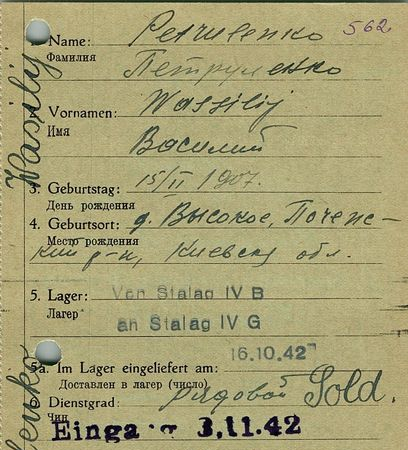 562
1. Name: Petrulenko
Фамилия Петруленко
2. Vornamen: Wassilij
Имя Василий
3. Geburtstag: 15/II 1907.
День рождения
4. Geburtsort: д. Высокое, Почепс-
Место рождения кий р-н, Киевская обл.
5. Lager: Von Stalag IV B
Лагерь an Stalag IV G
16.10.42
5a. Im Lager eingeliefert am:
Доставлен в лагерь (число)
6. Dienstgrad: рядовой Sold.
Чин
Eingang 3.11.42
Wasilij